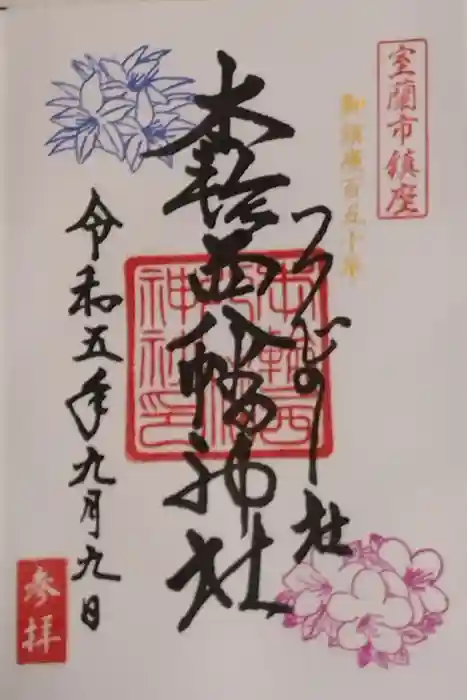 室蘭市鎮座
御鎮座百五十年
つつじの社
本輪西八幡神社
本輪西八幡神社印
令和五年九月九日
参拝